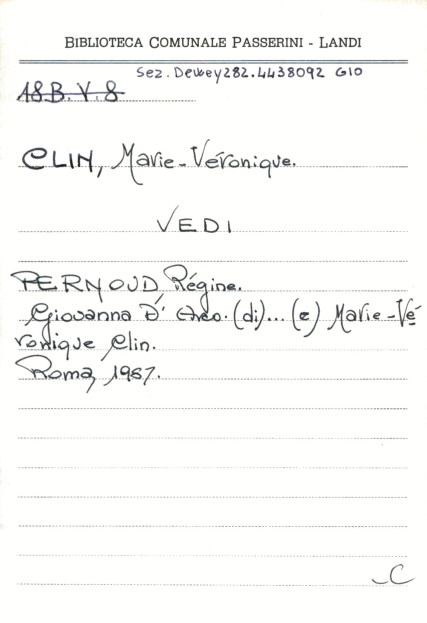 BIBLIOTECA COMUNALE PASSERINI - LANDI
Sez. Dewey 282.4438092 GIO
18B. V. 8
CLIN, Marie-Véronique.
VEDI
PERNOUD, Régine.
Giovanna D'Arco. (di)... (e) Marie-Vé
ronique Clin.
Roma, 1987.
C